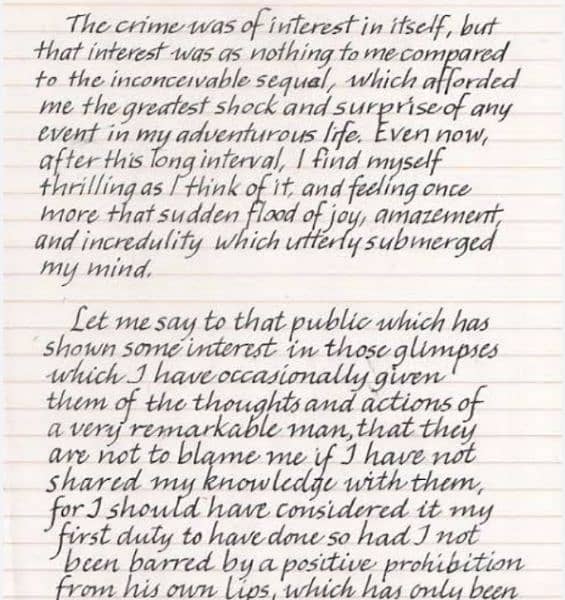 The crime was of interest in itself, but
that interest was as nothing to me compared
to the inconceivable sequel, which afforded
me the greatest shock and surprise of any
event in my adventurous life. Even now,
after this long interval, I find myself
thrilling as I think of it, and feeling once
more that sudden flood of joy, amazement,
and incredulity which utterly submerged
my mind.
Let me say to that public which has
shown some interest in those glimpses
which I have occasionally given
them of the thoughts and actions of
a very remarkable man, that they
are not to blame me if I have not
shared my knowledge with them,
for I should have considered it my
first duty to have done so had I not
been barred by a positive prohibition
from his own lips, which has only been